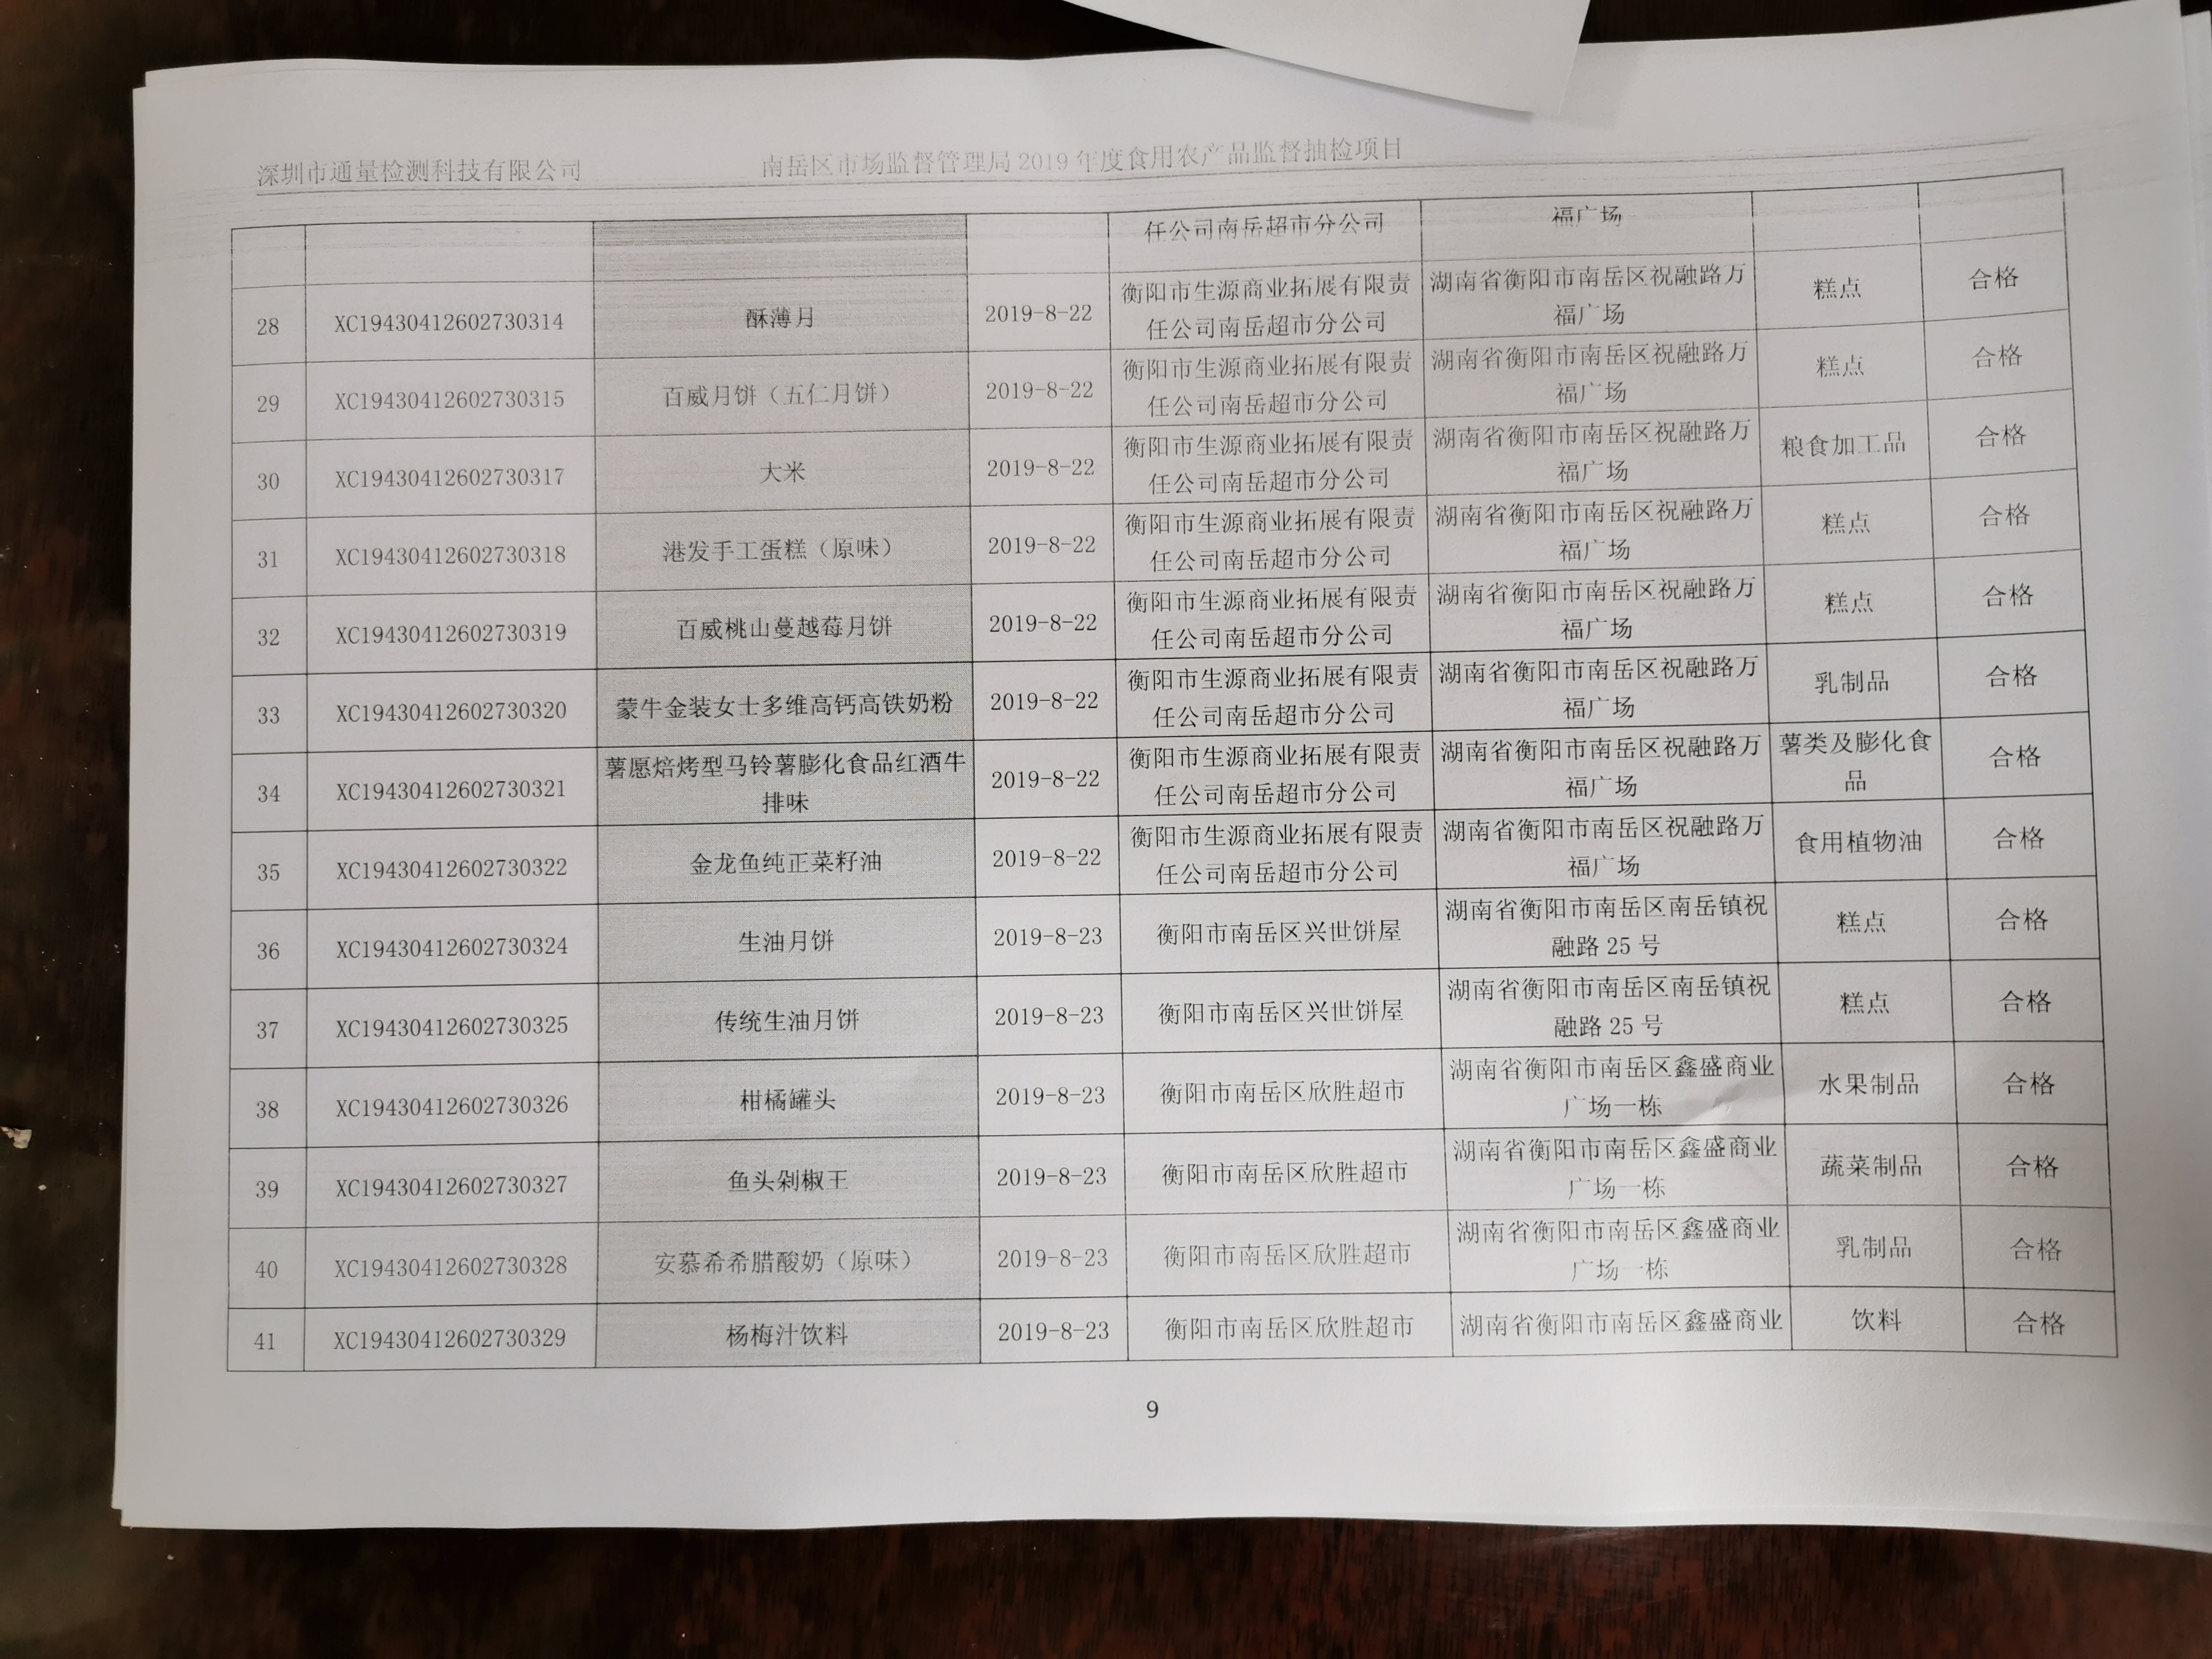 深圳市通量检测科技有限公司 南岳区市场监督管理局 2019 年度食用农产品监督抽检项目
任公司南岳超市分公司 福广场
28 XC19430412602730314 酥薄月 2019-8-22 衡阳市生源商业拓展有限责 湖南省衡阳市南岳区祝融路万 糕点 合格
任公司南岳超市分公司 福广场
29 XC19430412602730315 百威月饼（五仁月饼） 2019-8-22 衡阳市生源商业拓展有限责 湖南省衡阳市南岳区祝融路万 糕点 合格
任公司南岳超市分公司 福广场
30 XC19430412602730317 大米 2019-8-22 衡阳市生源商业拓展有限责 湖南省衡阳市南岳区祝融路万 粮食加工品 合格
任公司南岳超市分公司 福广场
31 XC19430412602730318 港发手工蛋糕（原味） 2019-8-22 衡阳市生源商业拓展有限责 湖南省衡阳市南岳区祝融路万 糕点 合格
任公司南岳超市分公司 福广场
32 XC19430412602730319 百威桃山蔓越莓月饼 2019-8-22 衡阳市生源商业拓展有限责 湖南省衡阳市南岳区祝融路万 糕点 合格
任公司南岳超市分公司 福广场
33 XC19430412602730320 蒙牛金装女士多维高钙高铁奶粉 2019-8-22 衡阳市生源商业拓展有限责 湖南省衡阳市南岳区祝融路万 乳制品 合格
任公司南岳超市分公司 福广场
34 XC19430412602730321 薯愿焙烤型马铃薯膨化食品红酒牛 2019-8-22 衡阳市生源商业拓展有限责 湖南省衡阳市南岳区祝融路万 薯类及膨化食 合格
排味 任公司南岳超市分公司 福广场 品
35 XC19430412602730322 金龙鱼纯正菜籽油 2019-8-22 衡阳市生源商业拓展有限责 湖南省衡阳市南岳区祝融路万 食用植物油 合格
任公司南岳超市分公司 福广场
36 XC19430412602730324 生油月饼 2019-8-23 衡阳市南岳区兴世饼屋 湖南省衡阳市南岳区南岳镇祝 糕点 合格
融路 25 号
37 XC19430412602730325 传统生油月饼 2019-8-23 衡阳市南岳区兴世饼屋 湖南省衡阳市南岳区南岳镇祝 糕点 合格
融路 25 号
38 XC19430412602730326 柑橘罐头 2019-8-23 衡阳市南岳区欣胜超市 湖南省衡阳市南岳区鑫盛商业 水果制品 合格
广场一栋
39 XC19430412602730327 鱼头剁椒王 2019-8-23 衡阳市南岳区欣胜超市 湖南省衡阳市南岳区鑫盛商业 蔬菜制品 合格
广场一栋
40 XC19430412602730328 安慕希希腊酸奶（原味） 2019-8-23 衡阳市南岳区欣胜超市 湖南省衡阳市南岳区鑫盛商业 乳制品 合格
广场一栋
41 XC19430412602730329 杨梅汁饮料 2019-8-23 衡阳市南岳区欣胜超市 湖南省衡阳市南岳区鑫盛商业 饮料 合格
9